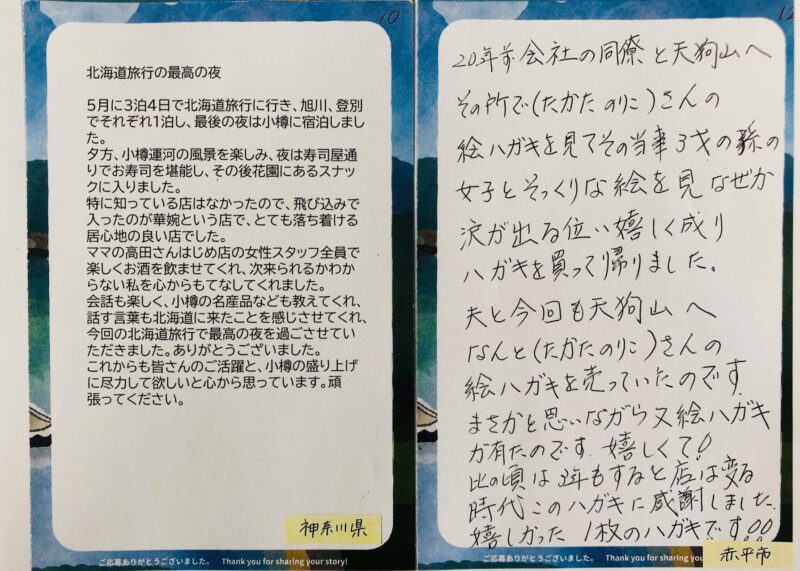 10
北海道旅行の最高の夜
5月に3泊4日で北海道旅行に行き、旭川、登別
でそれぞれ1泊し、最後の夜は小樽に宿泊しまし
た。
夕方、小樽運河の風景を楽しみ、夜は寿司屋通
りでお寿司を堪能し、その後花園にあるスナッ
クに入りました。
特に知っている店はなかったので、飛び込みで
入ったのが華婉という店で、とても落ち着ける
居心地の良い店でした。
ママの高田さんはじめ店の女性スタッフ全員で
楽しくお酒を飲ませてくれ、次来られるかわか
らない私を心からもてなしてくれました。
会話も楽しく、小樽の名産品なども教えてくれ、
話す言葉も北海道に来たことを感じさせてくれ、
今回の北海道旅行で最高の夜を過ごさせてい
ただきました。ありがとうございました。
これからも皆さんのご活躍と、小樽の盛り上げ
に尽力して欲しいと心から思っています。頑
張ってください。
神奈川県
ご応募ありがとうございました。 Thank you for sharing your story!
12
20年前会社の同僚と天狗山へ
その所で(たかたのりこ)さんの
絵ハガキを見てその当事3才の孫の
女子とそっくりな絵を見なぜか
涙が出る位い嬉しく成り
ハガキを買って帰りました。
夫と今回も天狗山へ
なんと(たかたのりこ)さんの
絵ハガキを売っていたのです
まさかと思いながら又絵ハガキ
が有たのです 嬉しくて!
此の頃は3年もすると店は変る
時代このハガキに感謝しました
嬉しかった 1枚のハガキです!!
赤平市
ご応募ありがとうございました。 Thank you for sharing your